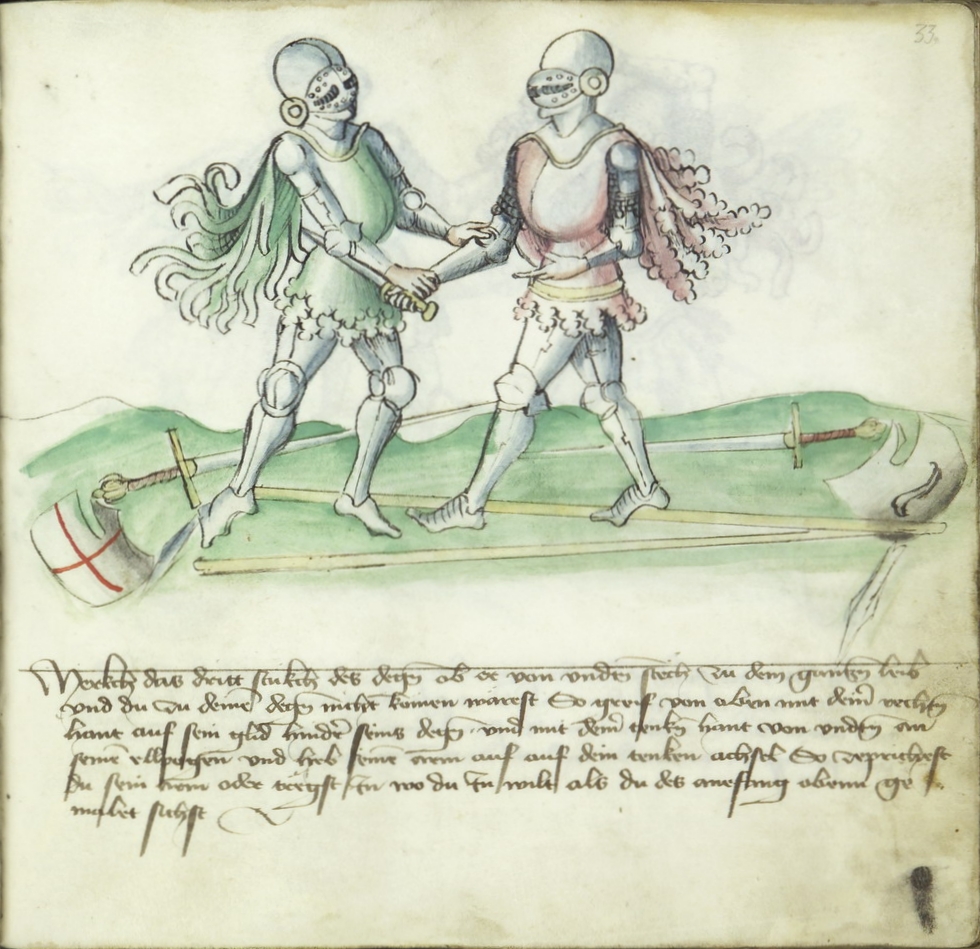 33.
Merckch das dritt stukch des degn ob er von vndtn stech zu dem gantzen leib
vnd du zu deinem degn nicht komen warest So greif von oben mit deiner rechtn
hant auf sein glid hinder seins degn vnd mit deiner tenkn hant von vndtn an
seinen ellpogen vnd heb seinen arem auf auf dein tenken achsel So zeprichest
du sein arem oder tregst in wo du in wilt als du des anefang obenn ge
malet sichst